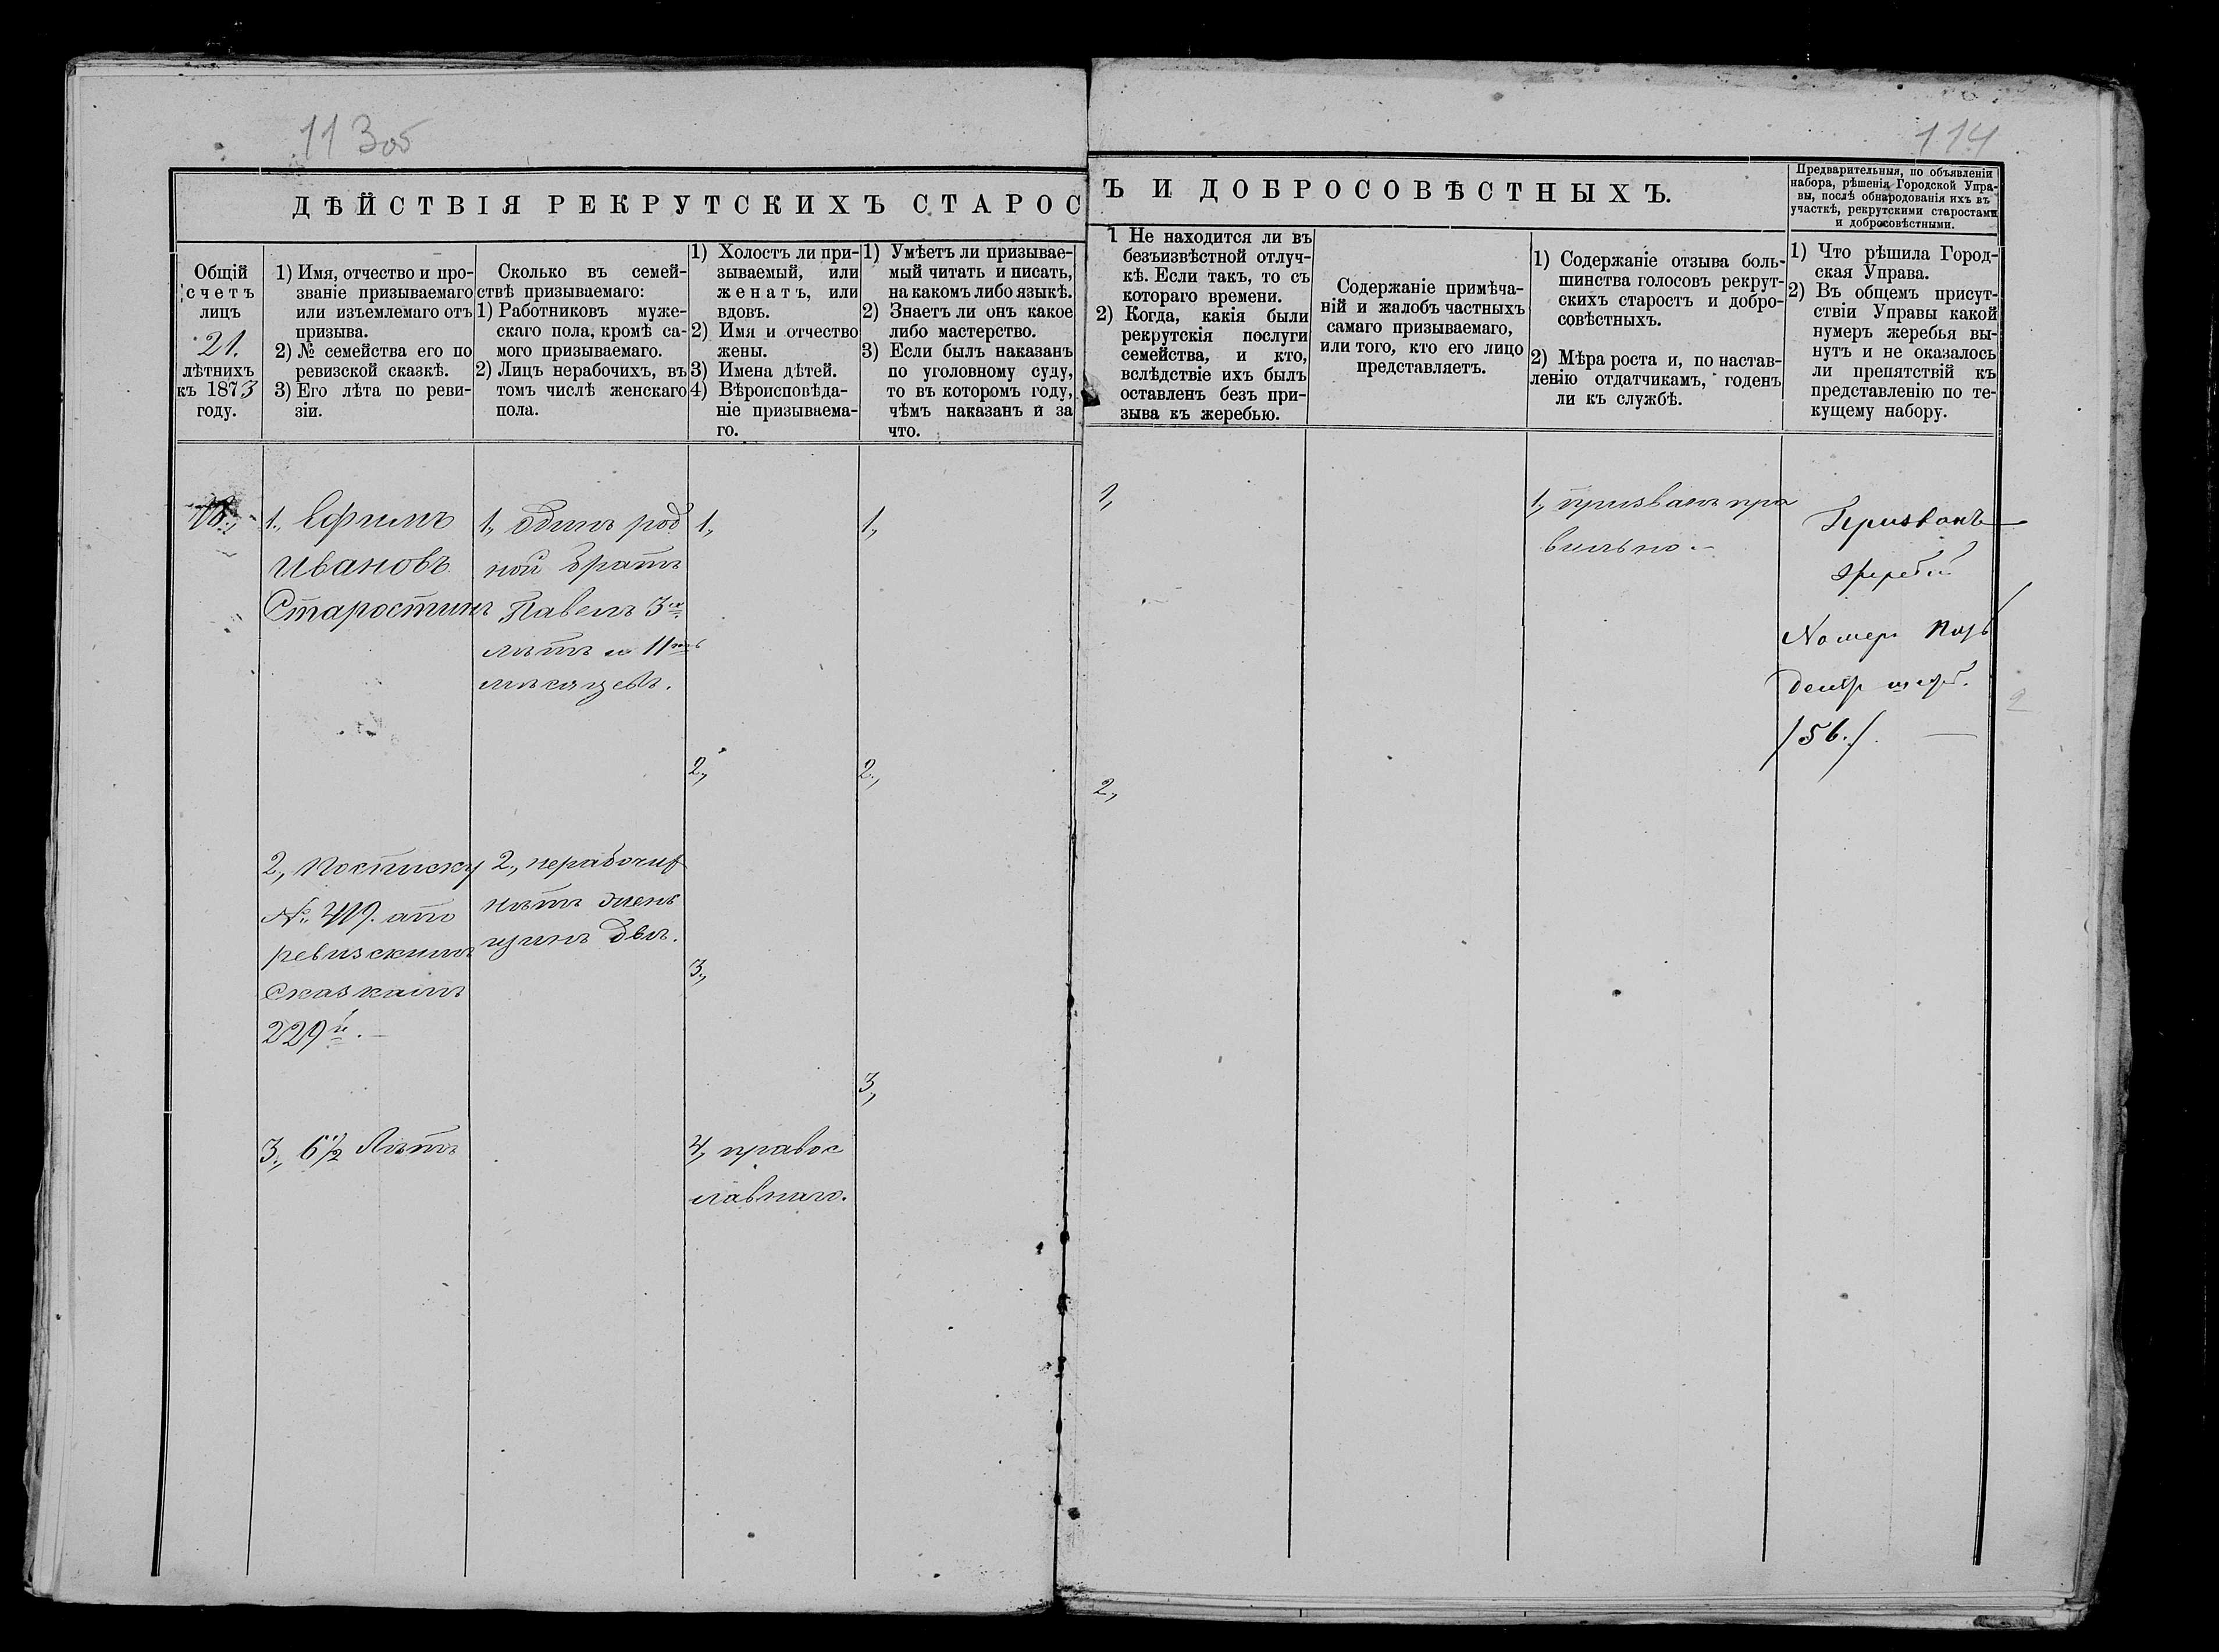 113об
114
ДѢЙСТВІЯ РЕКРУТСКИХЪ СТАРОС
Ъ И ДОБРОСОВѢСТНЫХЪ.
Предварительныя, по объявленіи
набора, рѣшенія Городской Упра-
вы, послѣ обнародованія ихъ въ
участкѣ, рекрутскими старостами
и добросовѣстными.
Общій
счетъ
лицъ
21.
лѣтнихъ
къ 1873
году.
1) Имя, отчество и про-
званіе призываемаго
или изъемлемаго отъ
призыва.
2) № семейства его по
ревизской сказкѣ.
3) Его лѣта по реви-
зіи.
Сколько въ семей-
ствѣ призываемаго:
1) Работниковъ муже-
скаго пола, кромѣ са-
мого призываемаго.
2) Лицъ нерабочихъ, въ
томъ числѣ женскаго
пола.
1) Холостъ ли при-
зываемый, или
женатъ, или
вдовъ.
2) Имя и отчество
жены.
3) Имена дѣтей.
4) Вѣроисповѣда-
ніе призываема-
го.
1) Умѣетъ ли призывае-
мый читать и писать,
на какомъ либо языкѣ.
2) Знаетъ ли онъ какое
либо мастерство.
3) Если былъ наказанъ
по уголовному суду,
то въ которомъ году,
чѣмъ наказанъ и за
что.
1 Не находится ли въ
безъизвѣстной отлуч-
кѣ. Если такъ, то съ
котораго времени.
2) Когда, какія были
рекрутскія послуги
семейства, и кто,
вслѣдствіе ихъ былъ
оставленъ безъ при-
зыва къ жеребью.
Содержаніе примѣча-
ній и жалобъ частныхъ
самаго призываемаго,
или того, кто его лицо
представляетъ.
1) Содержаніе отзыва боль-
шинства голосовъ рекрут-
скихъ старостъ и добро-
совѣстныхъ.
2) Мѣра роста и, по настав-
ленію отдатчикамъ, годенъ
ли къ службѣ.
1) Что рѣшила Город-
ская Управа.
2) Въ общемъ присут-
ствіи Управы какой
нумеръ жеребья вы-
нутъ и не оказалось
ли препятствій къ
представленію по те-
кущему набору.
18.,
1., Ефимъ
Ивановъ
Старостинъ
2., Посписку
№ 419. апо
ревизскимъ
Сказкамъ
229й. –
3., 6½ Лѣтъ
1., Одинъ род
ной братъ
Павелъ 3хъ
лѣтъ и 11ть
мѣсяцевъ.
2., нерабочихъ
нѣтъ жен
щинъ двѣ.
1.,
2.,
3.,
4., правос
лавнаго.
1.,
2.,
3.,
1.,
2.,
1., призванъ пра
вильно. –
Призванъ
жребій
Номеръ
/56./. —